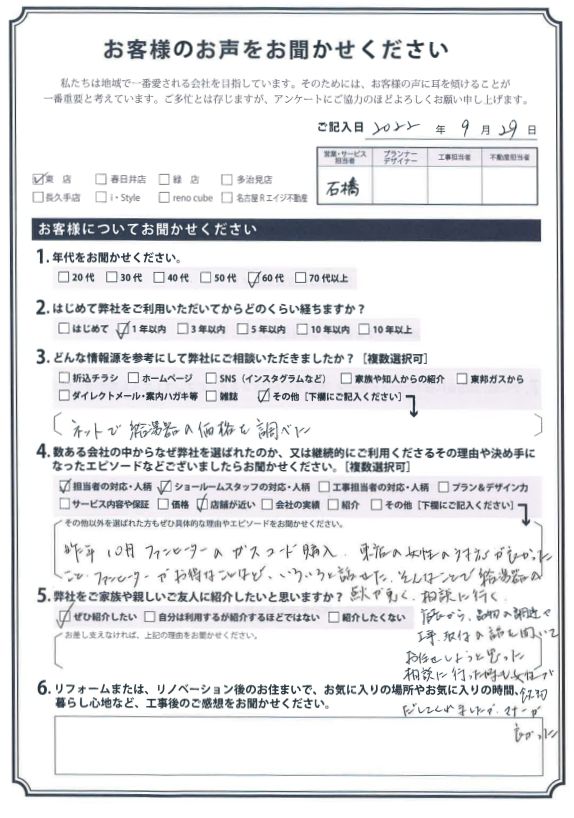 お客様のお声をお聞かせください
私たちは地域で一番愛される会社を目指しています。そのためには、お客様の声に耳を傾けることが
一番重要と考えています。ご多忙とは存じますが、アンケートにご協力のほどよろしくお願い申し上げます。
ご記入日 2022 年 9 月 29 日
営業・サービス担当者 プランナーデザイナー 工事担当者 不動産担当者
石橋
☑東 店 □春日井店 □緑 店 □多治見店
□長久手店 □i・Style □reno cube □名古屋Rエイジ不動産
お客様についてお聞かせください
1. 年代をお聞かせください。
□20代 □30代 □40代 □50代 ☑60代 □70代以上
2. はじめて弊社をご利用いただいてからどのくらい経ちますか？
□はじめて ☑1年以内 □3年以内 □5年以内 □10年以内 □10年以上
3. どんな情報源を参考にして弊社にご相談いただきましたか？［複数選択可］
□折込チラシ □ホームページ □SNS（インスタグラムなど） □家族や知人からの紹介 □東邦ガスから
□ダイレクトメール・案内ハガキ等 □雑誌 ☑その他［下欄にご記入ください］
ネットで給湯器の価格を調べた
4. 数ある会社の中からなぜ弊社を選ばれたのか、又は継続的にご利用くださるその理由や決め手に
なったエピソードなどございましたらお聞かせください。［複数選択可］
☑担当者の対応・人柄 ☑ショールームスタッフの対応・人柄 □工事担当者の対応・人柄 □プラン＆デザイン力
□サービス内容や保証 □価格 ☑店舗が近い □会社の実績 □紹介 □その他［下欄にご記入ください］
その他以外を選ばれた方もぜひ具体的な理由やエピソードをお聞かせください。
昨年10月ファンヒーターのガスコード購入、東店の女性の対応が良かった
こと、ファンヒーターがお得なことなど、いろいろと話せた。そんなことで給湯器の
5. 弊社をご家族や親しいご友人に紹介したいと思いますか？
点火が悪く、相談に行く。
☑ぜひ紹介したい □自分は利用するが紹介するほどではない □紹介したくない
お差し支えなければ、上記の理由をお聞かせください。
品物の調達や
工事、取付の話を聞いて
お任せしようと思った
相談に行った時も女性が
6. リフォームまたは、リノベーション後のお住まいで、お気に入りの場所やお気に入りの時間、
暮らし心地など、工事後のご感想をお聞かせください。
だしてくれましたが、マナーが
良かった